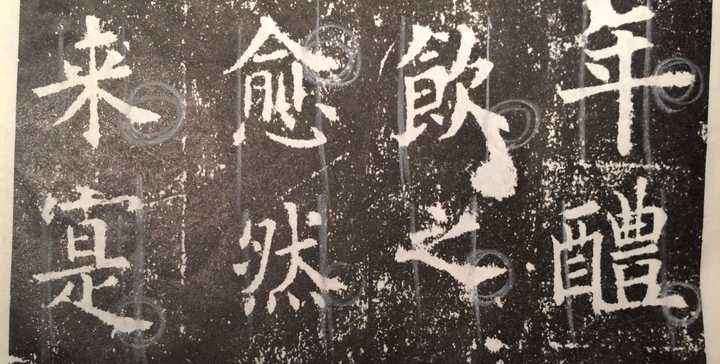 年醴
飲之
愈然
来寔